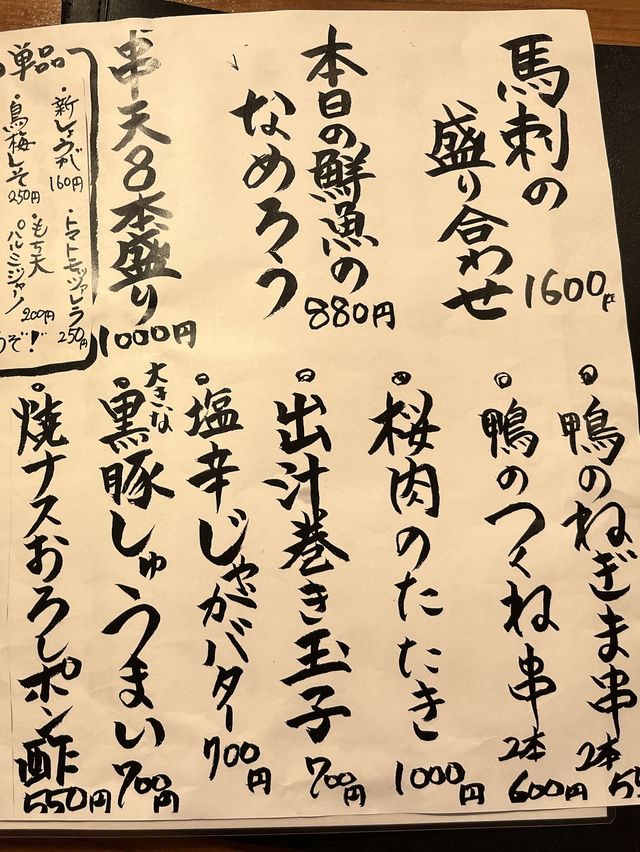 馬刺の
盛り合わせ
1600
本日の鮮魚の
なめろう
880円
串天8本盛り
1000円
単品
・新しょうが
160円
・トマトモッツァレラ
250円
・鳥梅しそ
250円
・もち天
200円
パルミジャーノ
うぞ!
鴨のねぎま串
2本
55
鴨のつくね串
2本
600円
桜肉のたたき
1000円
出汁巻き玉子
700円
塩辛じゃがバター
700円
大きな
黒豚しゅうまい
700円
焼ナスおろしポン酢
550円